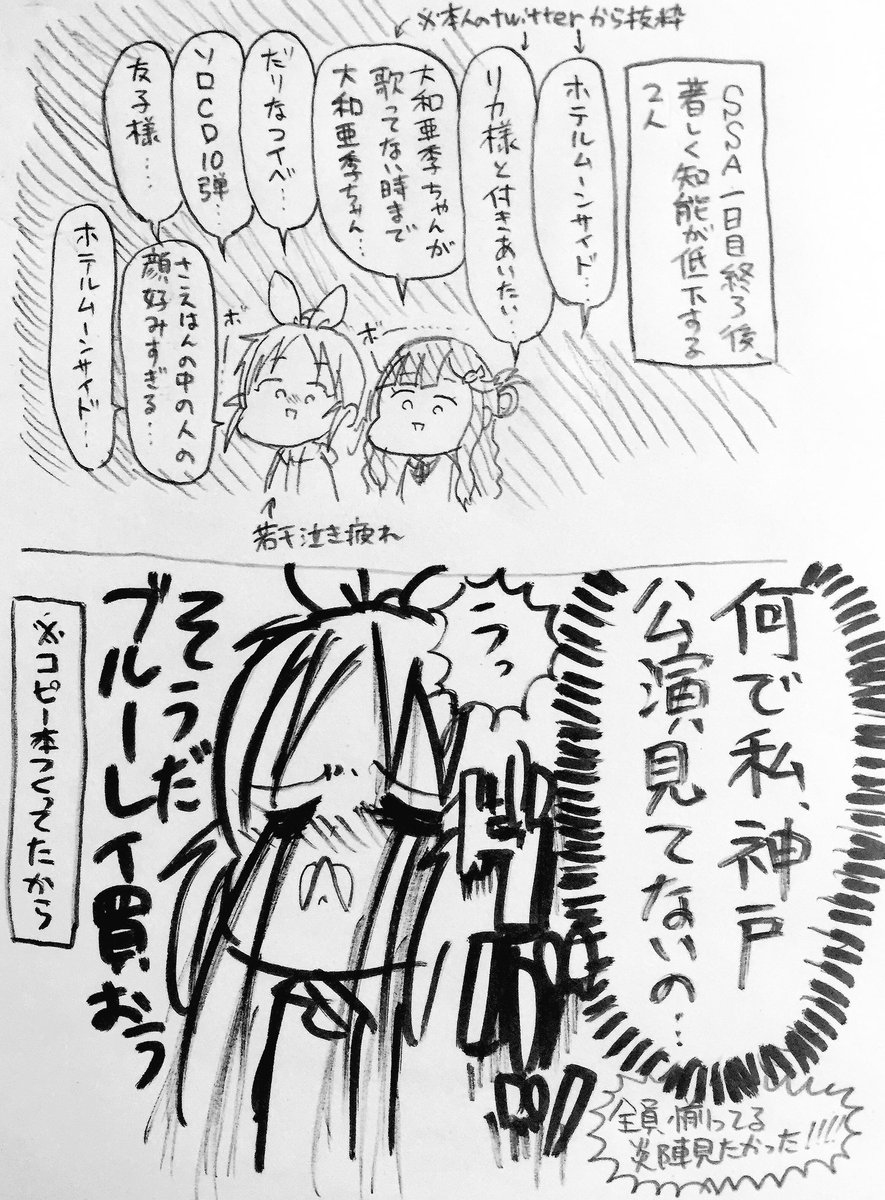 ※本人のtwitterから抜粋
SSA一日目終了後、
著しく知能が低下する
2人
ホテルムーンサイド…
リカ様と付きあいたい…
大和亜季ちゃんが
歌ってない時まで
大和亜季ちゃん…
だりなつイベ…
ソロCD10弾…
友子様……
さえはんの中の人の
顔好みすぎる…
ホテルムーンサイド…
ボー
ボー
↑
若干泣き疲れ
何で私、神戸
公演見てないの…
うっ
そうだ
ブルーレイ買おう
※コピー本つくってたから
全員揃ってる
炎陣見たかった!!!